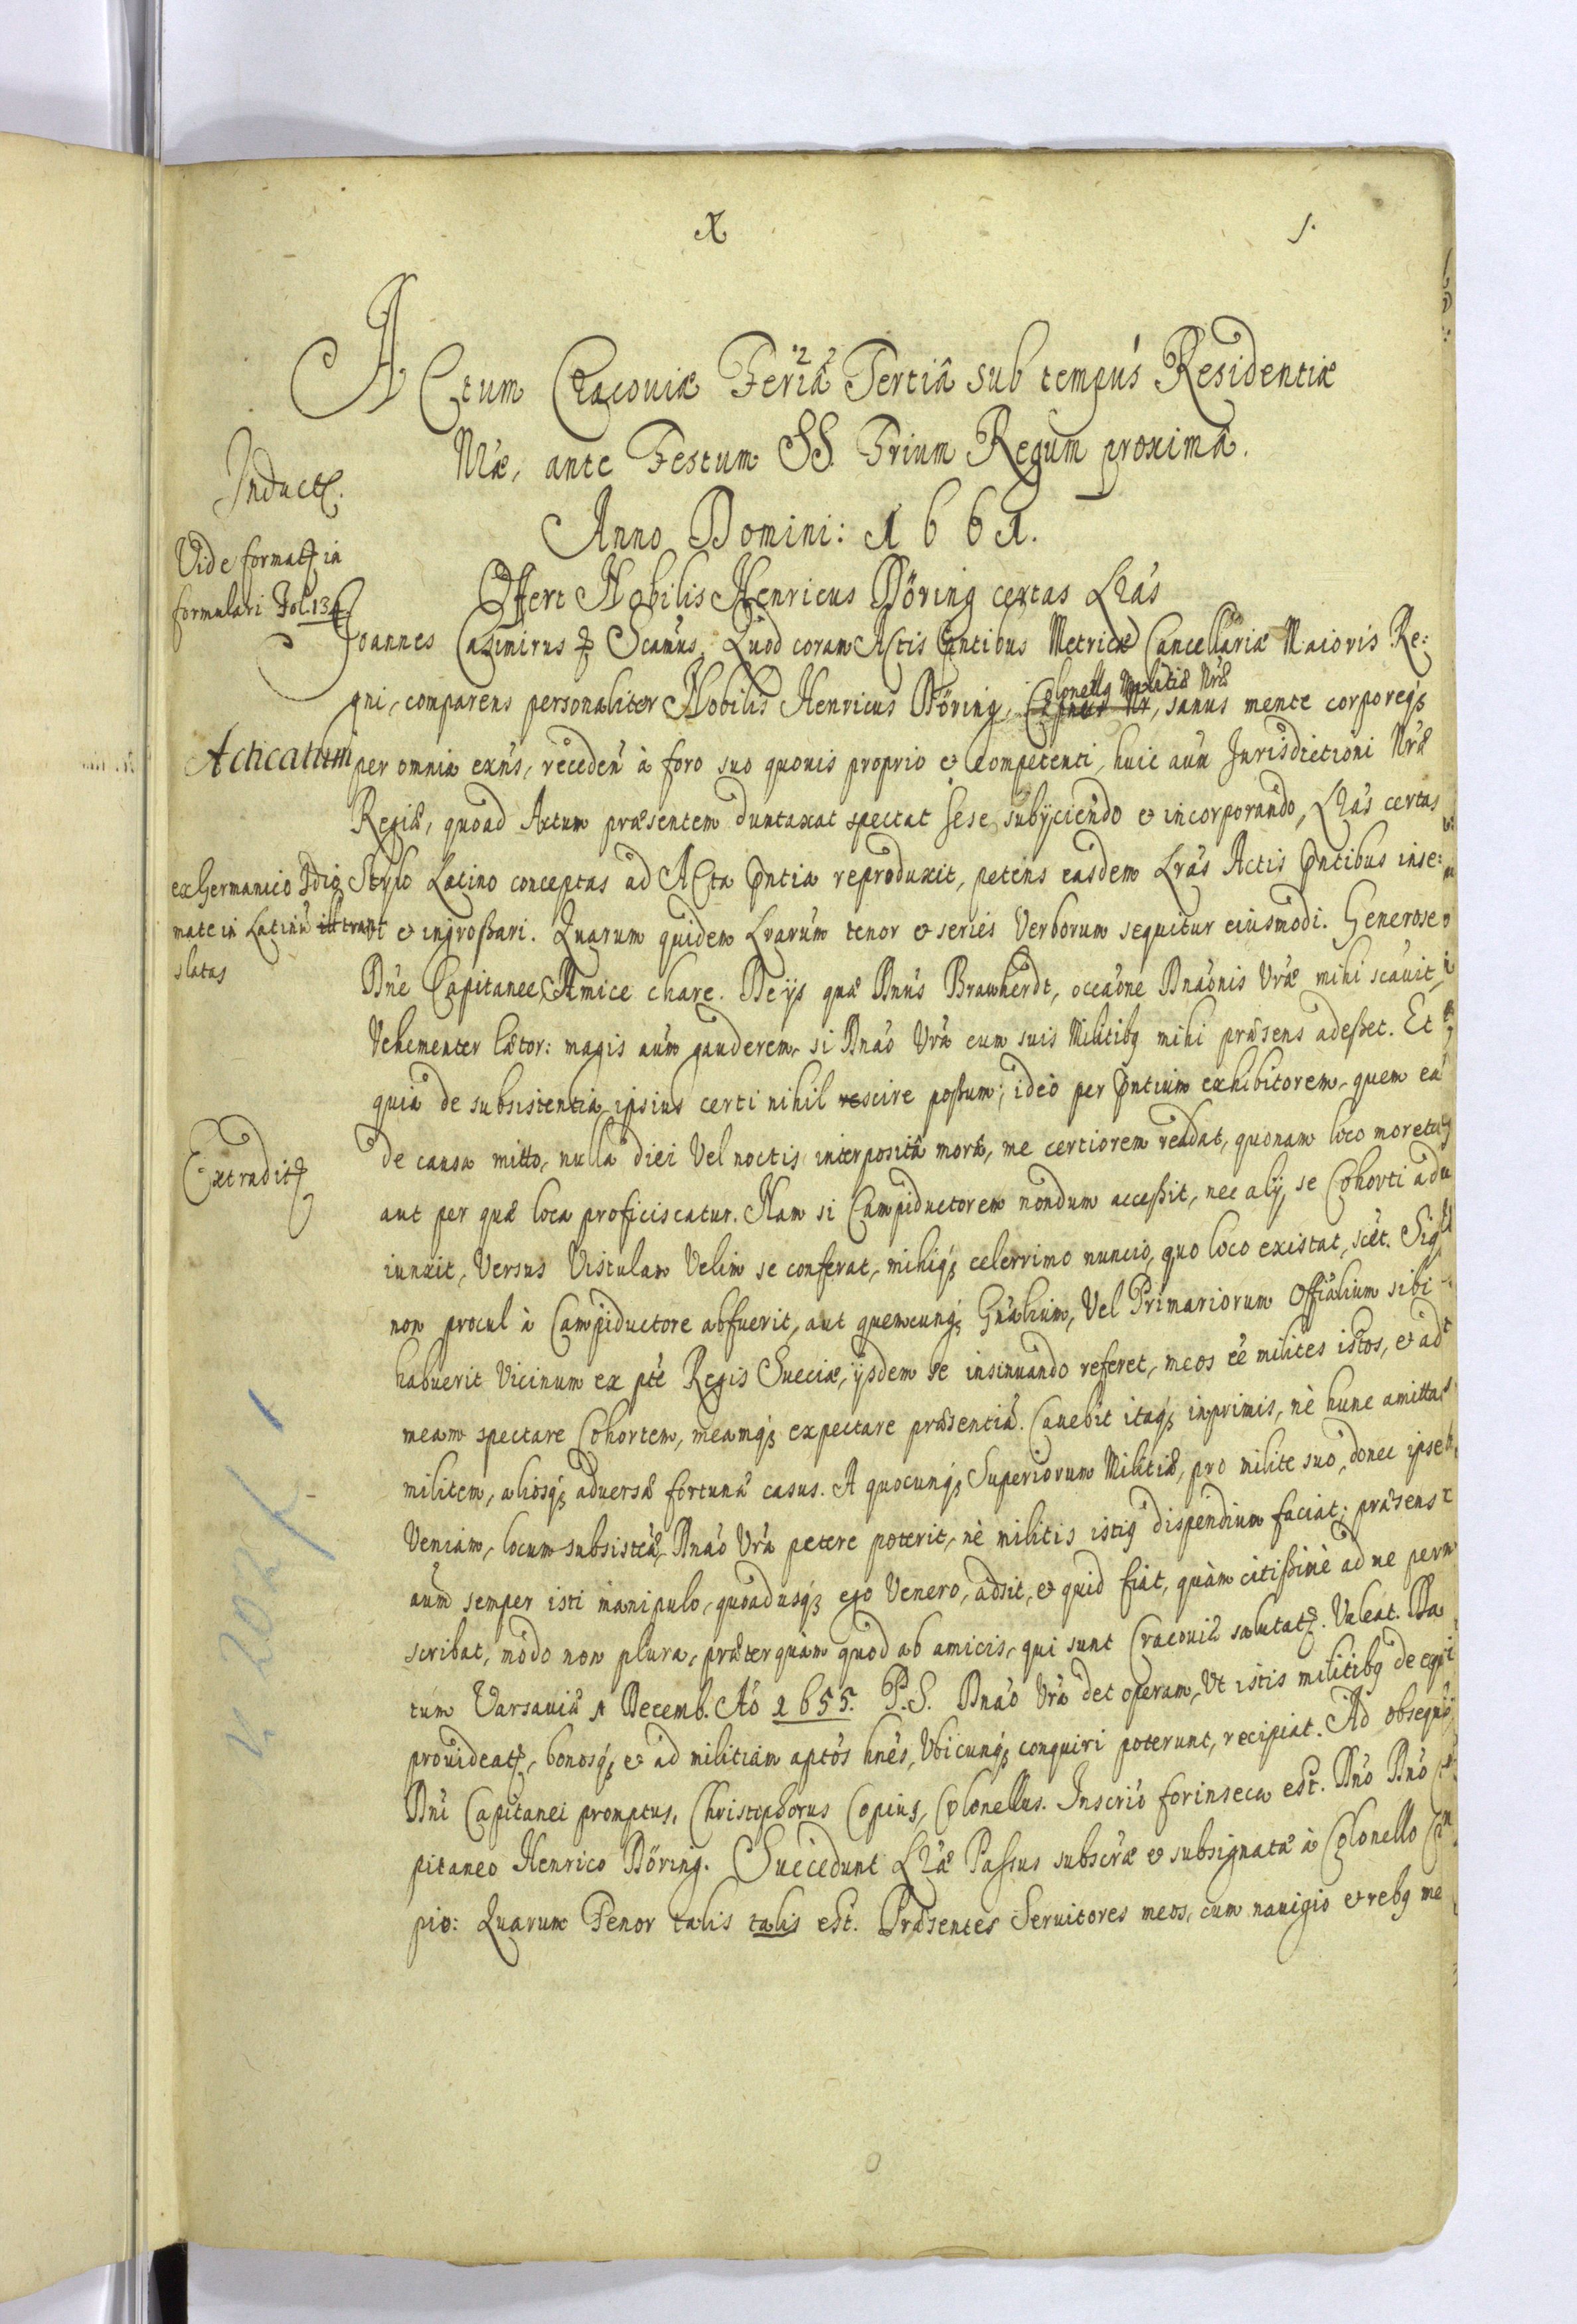 X
1.
ACtum Cracoviæ Feria Tertiâ sub tempus Residentiæ
Nræ, ante Festum SS. Trium Regum proximâ.
Induct.
Anno Domini: 1661.
Vide format in
formulari Fol. 134
Offert Nobilis Henricus Döring certas Lrás
Joannes Casimirus Scamus, Quod coram Actis Pntibus Metricæ Cancellariæ Maioris Re:
Colonellg Militiæ Nræ
gni, comparens personaliter Nobilis Henricus Döring, sanus mente corporeq;
Acticatum
per omnia exns, receden à foro suo quouis proprio & competenti, huic aun Jurisdictioni Nræ
Regiæ, quoad Actum præsentem duntaxat spectat sese subyciendo & incorporando, Lrás certas
ex Germanico Idio
mate in Latinu tran
slatas
Stylo Latino conceptas ad ACta Pntia reproduxit, petens easdem Lrás Actis Pntibus inse:
ri & ingroßari. Quarum quidem Lrarum tenor & series Verborum sequitur eiusmodi. Generose
Dne Capitanee, Amice chare. De ijs quæ Dnus Brawherdt, occaõne Dnaõnis Vræ mihi scauit,
Vehementer lætor: magis aum gauderem, si Dnaõ Vrã cum suis Militibg mihi præsens adeßet. Et
quia de subsistentia ipsius certi nihil scire poßum; ideò per Pntium exhibitorem, quem ea
Extradit
de causa mitto, nulla diei Vel noctis interposità morâ, me certiorem reddat, quonam loco moretur
aut per quæ loca proficiscatur. Nam si Campiductorem nondum acceßit, nec alij se Cohorti ad
iunxit, Versus Vistulam Velim se conferat, mihiq; celerrimo nuncio, quo loco existat, scet. Si
non procul à Campiductore abfuerit, aut quemcunq; Gnalium, Vel Primariorum Offialium sibi
habuerit Vicinum ex pte Regis Sueciæ, ijsdem se insinuando referet, meos ee milites istos, & ad
meam spectare Cohortem, meamq; expectare præsentiã. Cauebit itaq; inprimis, nè hunc amittat
militem, aliosq; aduersæ fortunæ casus. A quocunq; Superiorum Militiæ, pro milite suo, donec ipse
Veniam, locum subsistẽ, Dnaõ Vrã petere poterit, nè militis istig dispendium faciat; præsens
aum semper isti manipulo, quoadusq; ego Venero, adsit, & quid fiat, quàm citißimè ad me pern
scribat, modo non plura, præterquàm quod ab amicis, qui sunt Cracouiæ salutat. Valeat. Da
tum Varsauiæ 1 Decemb. Aõ 1655. P.S. Dnaõ Vrã det operam, Vt istis militibg de
prouideat, bonosq; & ad militiam aptos hnes, Vbicunq; conquiri poterunt, recipiat. Ad obsequia
Dni Capitanei promptus, Christophorus Copius, Colonellus. Inscriõ forinseca est. Dno Dno Ca
pitaneo Henrico Döring. Succedunt Lræ Passus subscræ & subsignatæ à Colonello Co
pio: Quarum Tenor talis talis est. Præsentes Seruitores meos, cum nauigio & rebg me
V. 202